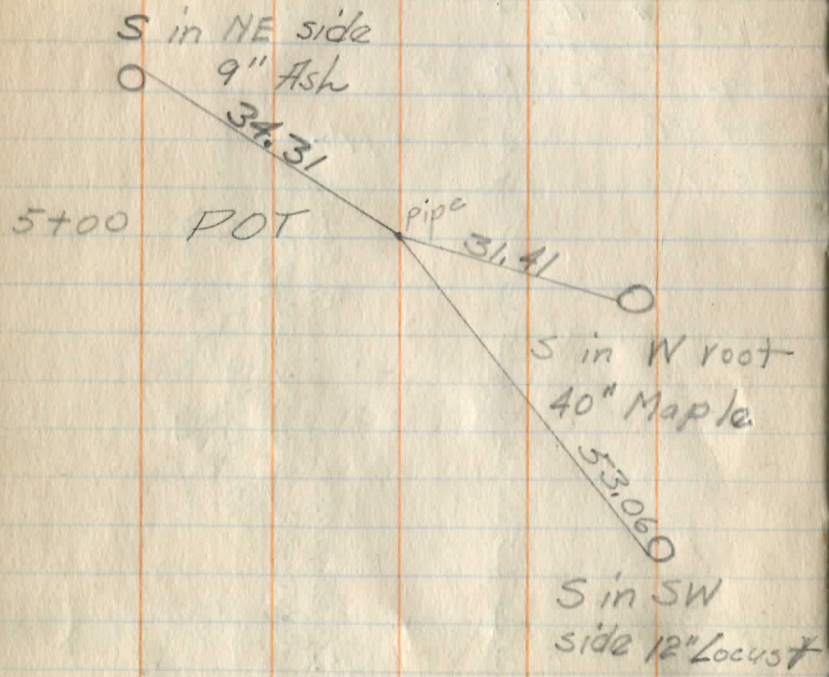 S in NE side
9" Ash
34.31
5+00 POT
pipe
31.41
S in W root
40" Maple
53.06
S in SW
side 12" Locust